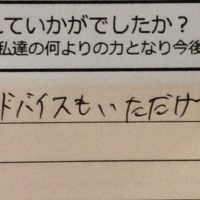 れていかがでしたか？
私達の何よりの力となり今後
ドバイスもいただけ